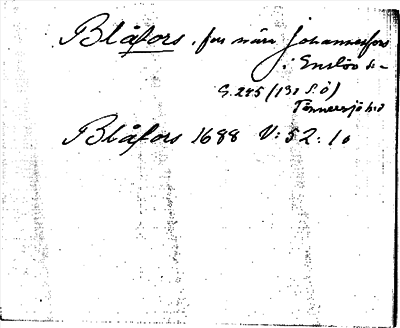 Blåfors, fors nära Johannesfors
i Enslöv sn
G. 285 (131 S.Ö)
Tönnersjö hd
Blåfors 1688 V: 52: 10